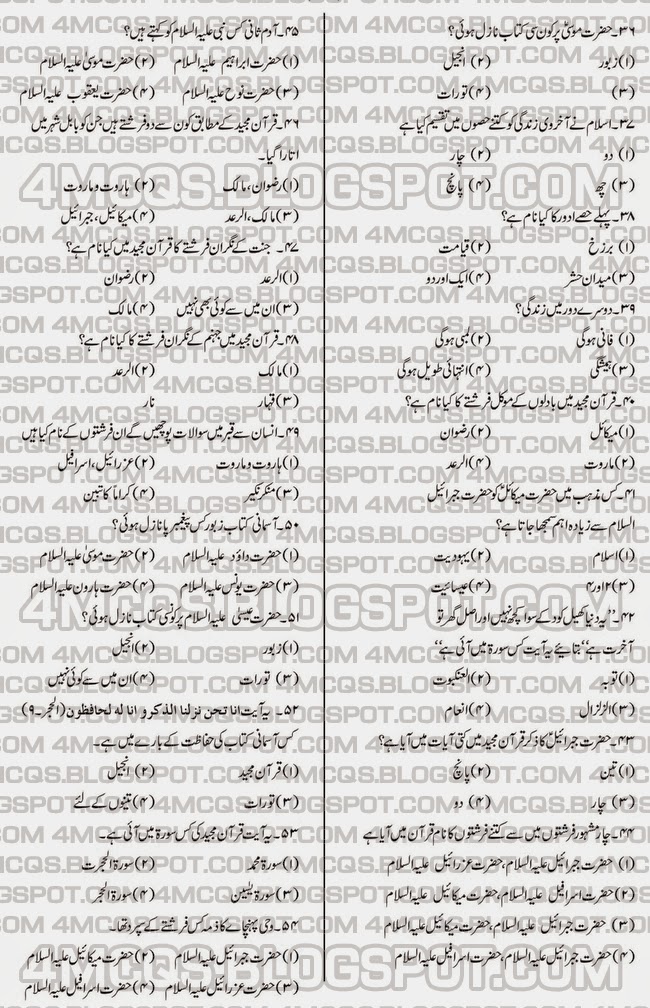 ۳۶۔ حضرت موسیٰؑ پر کون سی کتاب نازل ہوئی؟
(۱) زبور (۲) انجیل
(۳) (۴) تورات
۳۷۔ اسلام نے آخروی زندگی کو کتنے حصوں میں تقسیم کیا ہے
(۱) دو (۲) چار
(۳) چھ (۴) پانچ
۳۸۔ پہلے حصے ادور کا کیا نام ہے؟
(۱) برزخ (۲) قیامت
(۳) میدان حشر (۴) ایک اور دو
۳۹۔ دوسرے دور میں زندگی؟
(۱) فانی ہوگی (۲) لمبی ہوگی
(۳) ہمیشگی (۴) انتہائی طویل ہوگی
۴۰۔ قرآن مجید میں بادلوں کے موکل فرشتے کا کیا نام ہے؟
(۱) میکائل (۲) رضوان
(۲) ماروت (۴) الرعد
۴۱۔ کس مذہب میں حضرت میکائلؑ کو حضرت جبرائیل
السلام سے زیادہ اہم سمجھا جاتا ہے؟
(۱) اسلام (۲) یہودیت
(۳) ۲ اور ۴ (۴) عیسائیت
۴۲۔ ”یہ دنیا کھیل کود کے سوا کچھ نہیں اور اصل گھر تو
آخرت ہے“ بتائیے یہ آیت کس سورۃ میں آئی ہے“
(۱) توبہ (۲) العنکبوت
(۳) الزلزال (۴) انعام
۴۳۔ حضرت جبرائیلؑ کا ذکر قرآن مجید میں کتنی آیات میں آیا ہے؟
(۱) تین (۲) پانچ
(۳) چار (۴) دو
۴۴۔ چار مشہور فرشتوں میں سے کتنے فرشتوں کا نام قرآن میں آیا ہے
(۱) حضرت جبرائیل علیہ السلام، حضرت عزرائیل علیہ السلام
(۲) حضرت اسرافیل علیہ السلام، حضرت میکائیل علیہ السلام
(۳) حضرت جبرائیل علیہ السلام، حضرت میکائیل علیہ السلام
(۴) حضرت جبرائیل علیہ السلام، حضرت اسرافیل علیہ السلام
۴۵۔ آدم ثانی کس نبی علیہ السلام کو کہتے ہیں؟
(۱) حضرت ابراہیم علیہ السلام (۲) حضرت موسیٰ علیہ السلام
(۳) حضرت نوح علیہ السلام (۴) حضرت یعقوب علیہ السلام
۴۶۔ قرآن مجید کے مطابق کون سے دو فرشتے ہیں جن کو بابل شہر میں
اتارا گیا۔
(۱) رضوان، مالک (۲) ہاروت و ماروت
(۳) مالک، الرعد (۴) میکائیل، جبرائیل
۴۷۔ جنت کے نگران فرشتے کا قرآن مجید میں کیا نام ہے؟
(۱) الرعد (۲) رضوان
(۳) ان میں سے کوئی بھی نہیں (۴) مالک
۴۸۔ قرآن مجید میں جہنم کے نگران فرشتے کا کیا نام ہے؟
(۱) مالک (۲) الرعد
(۳) قہار نار
۴۹۔ انسان سے قبر میں سوالات پوچھیں گے ان فرشتوں کے نام کیا ہیں
(۱) ہاروت و ماروت (۲) عزرائیل، اسرافیل
(۳) منکر نکیر (۴) کراماً کاتبین
۵۰۔ آسمانی کتاب زبور کس پیغمبر پا نازل ہوئی؟
(۱) حضرت داؤد علیہ السلام (۲) حضرت موسیٰ علیہ السلام
(۳) حضرت یونس علیہ السلام (۴) حضرت ہارون علیہ السلام
۵۱۔ حضرت عیسیٰ علیہ السلام پر کونسی کتاب نازل ہوئی؟
(۱) زبور (۲) انجیل
(۳) تورات (۴) ان میں سے کوئی نہیں
۵۲۔ یہ آیت انا نحن نزلنا الذکر و انا له لحافظون (الحجر۔۹)
کس آسمانی کتاب کی حفاظت کے بارے میں ہے۔
(۱) قرآن مجید (۲) انجیل
(۳) تورات (۴) تینوں کے لئے
۵۳۔ یہ آیت قرآن مجید کی کس سورۃ میں آئی ہے۔
(۱) سورۃ محمد (۲) سورۃ الحجرت
(۳) سورۃ یٰسین (۴) سورۃ الحجر
۵۴۔ وحی پہنچانے کا ذمہ کس فرشتے کے سپرد تھا۔
(۱) حضرت جبرائیل علیہ السلام (۲) حضرت میکائیل علیہ السلام
(۳) حضرت عزرائیل علیہ السلام (۴) حضرت اسرافیل علیہ السلام
4MCQS.BLOGSPOT.COM